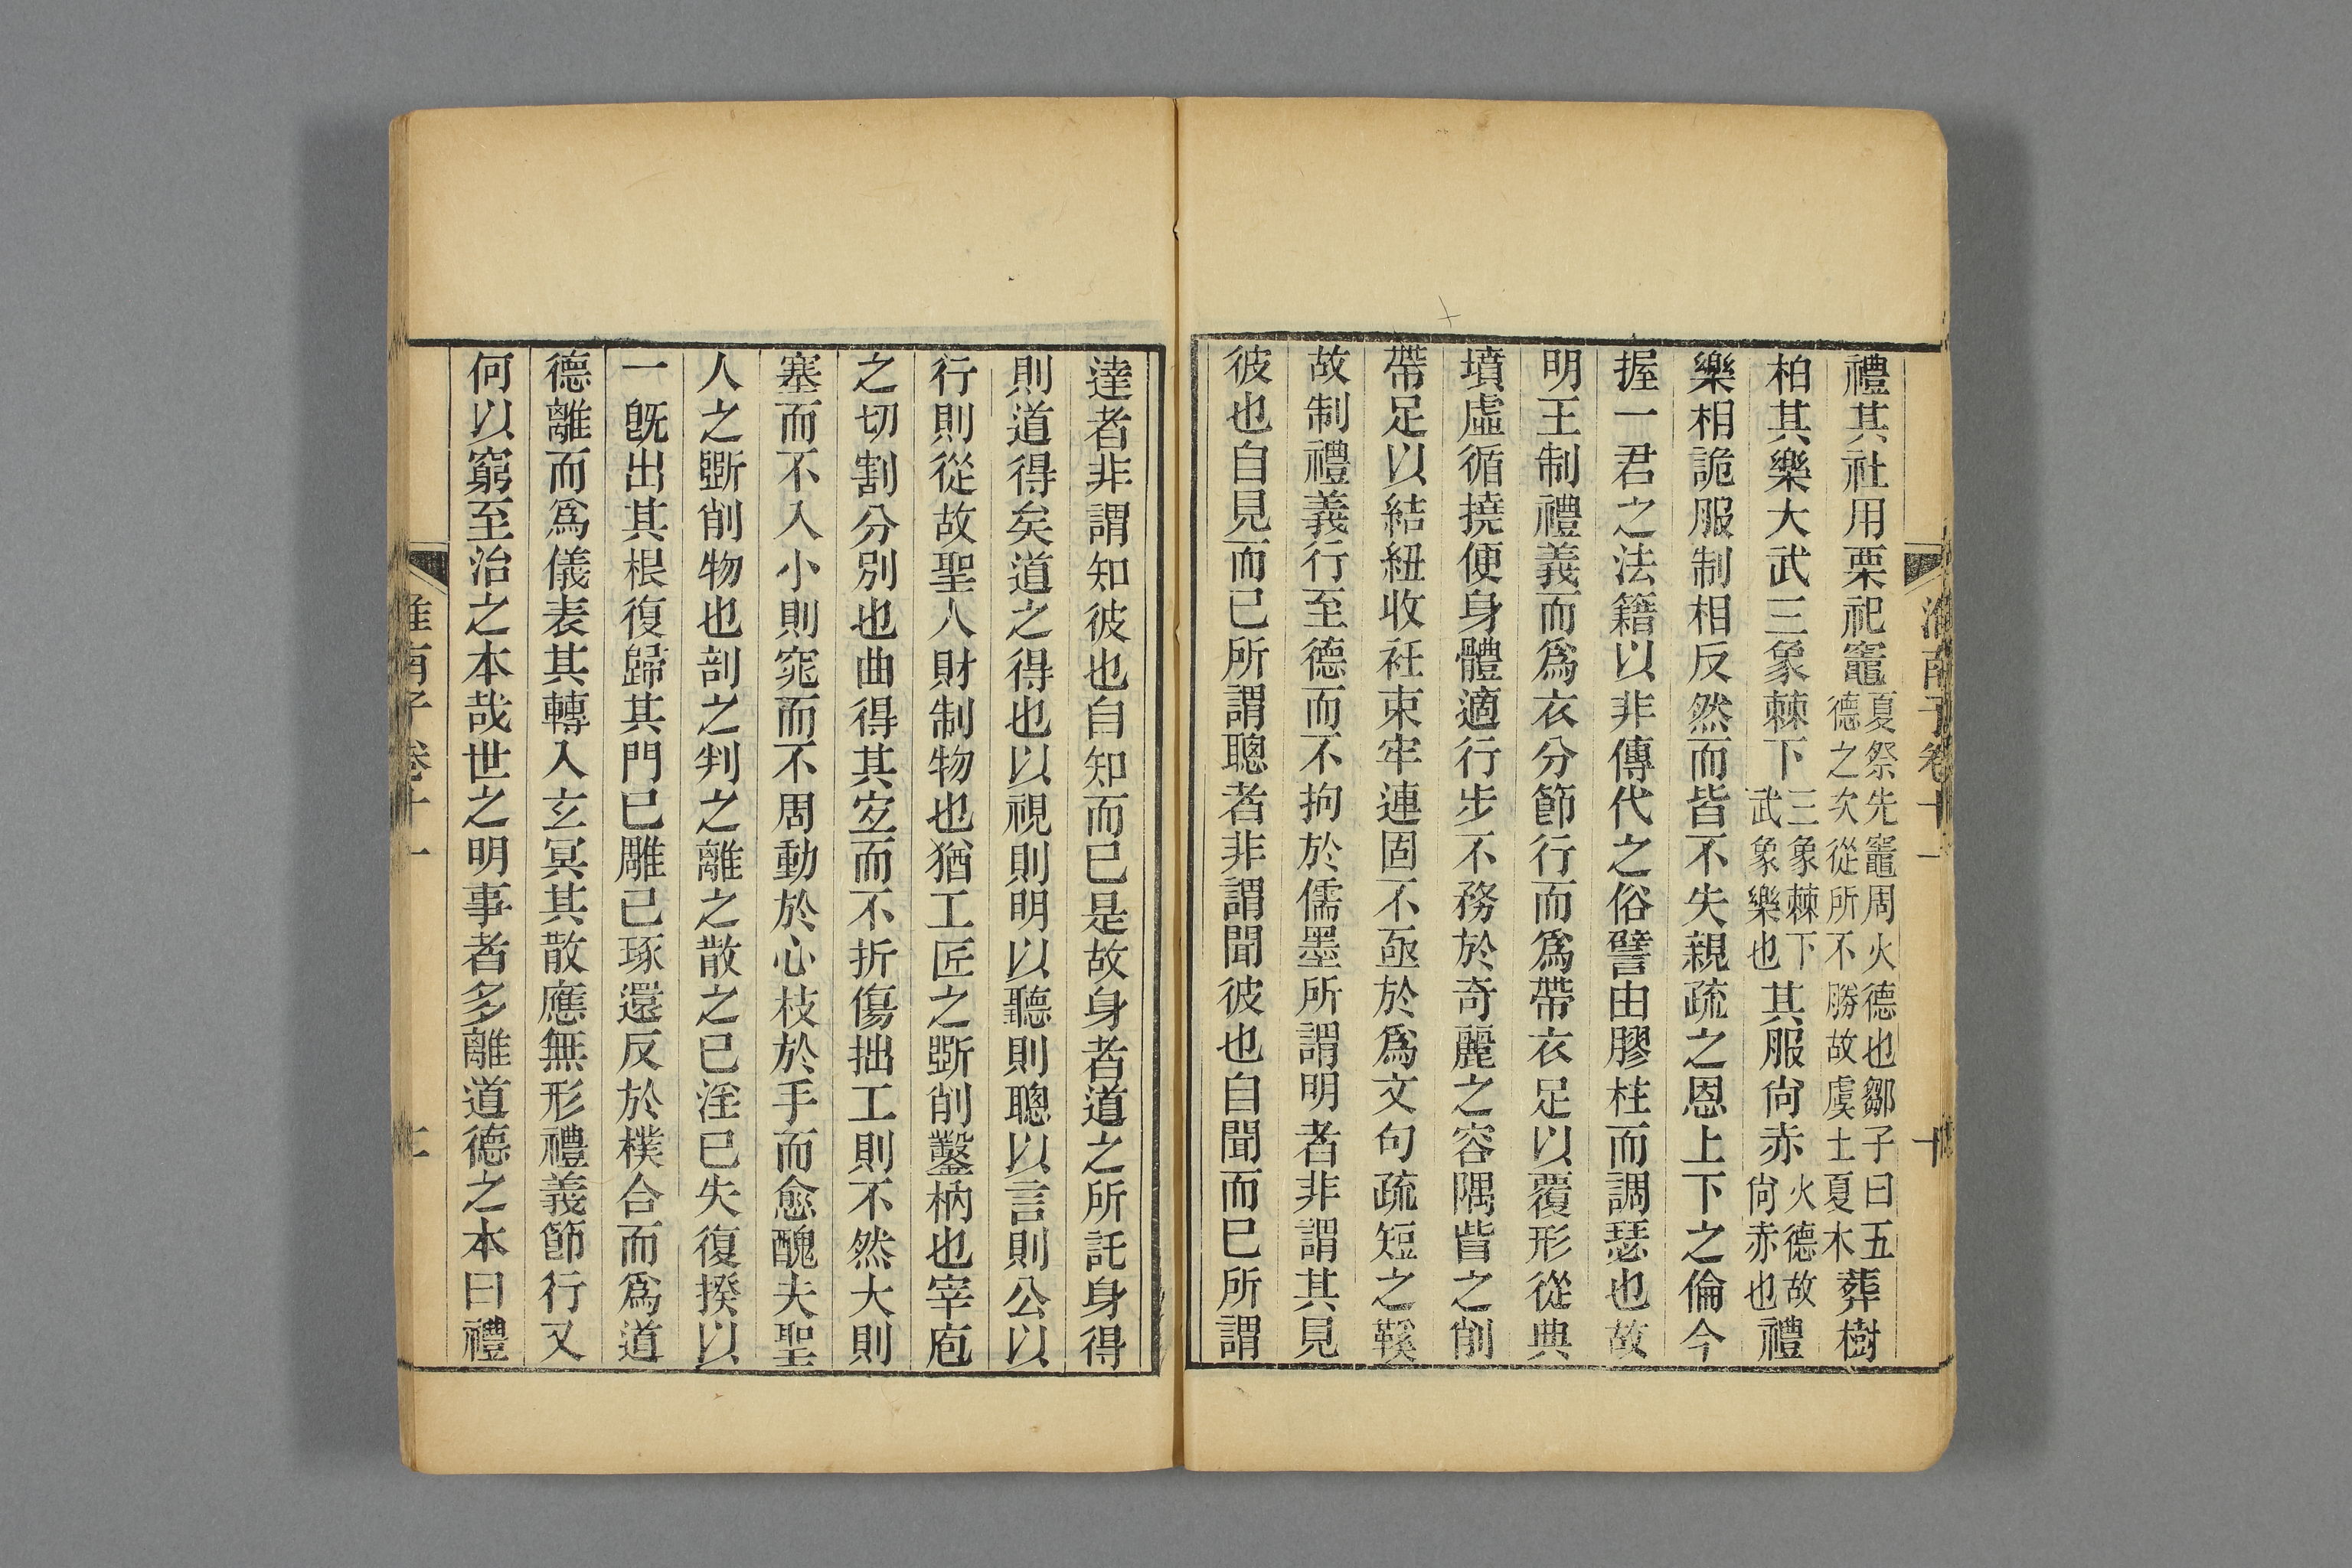 淮南子卷十一 十
禮其社用栗祀竈夏祭先竈周火德也鄒子曰五德之次從所不勝故虞土夏木葬樹
柏其樂大武三象棘下三象棘下武象樂也其服尙赤火德故尙赤也禮
樂相詭服制相反然而皆不失親疏之恩上下之倫今
握一君之法籍以非傳代之俗譬由膠柱而調瑟也故
明王制禮義而爲衣分節行而爲帶衣足以覆形從典
墳虛循撓便身體適行步不務於奇麗之容隅眥之削
帶足以結紐收衽束牢連固不亟於爲文句疏短之鞵
故制禮義行至德而不拘於儒墨所謂明者非謂其見
彼也自見而已所謂聰者非謂聞彼也自聞而已所謂
達者非謂知彼也自知而已是故身者道之所託身得
則道得矣道之得也以視則明以聽則聰以言則公以
行則從故聖人財制物也猶工匠之斲削鑿枘也宰庖
之切割分別也曲得其宜而不折傷拙工則不然大則
塞而不入小則窕而不周動於心枝於手而愈醜夫聖
人之斲削物也剖之判之離之散之已淫已失復揆以
一旣出其根復歸其門已雕已琢還反於樸合而爲道
德離而爲儀表其轉入玄冥其散應無形禮義節行又
何以窮至治之本哉世之明事者多離道德之本曰禮
淮南子卷十一